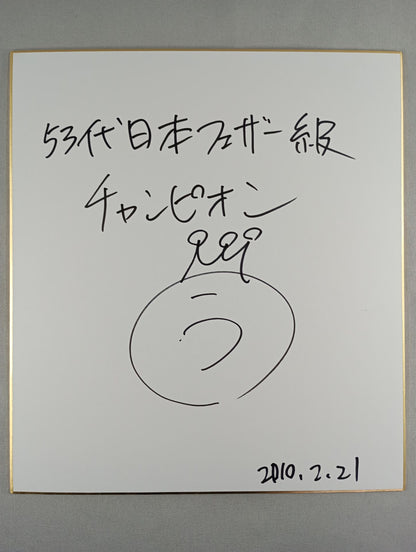 53代日本フェザー級
チャンピオン
う
2010.2.21